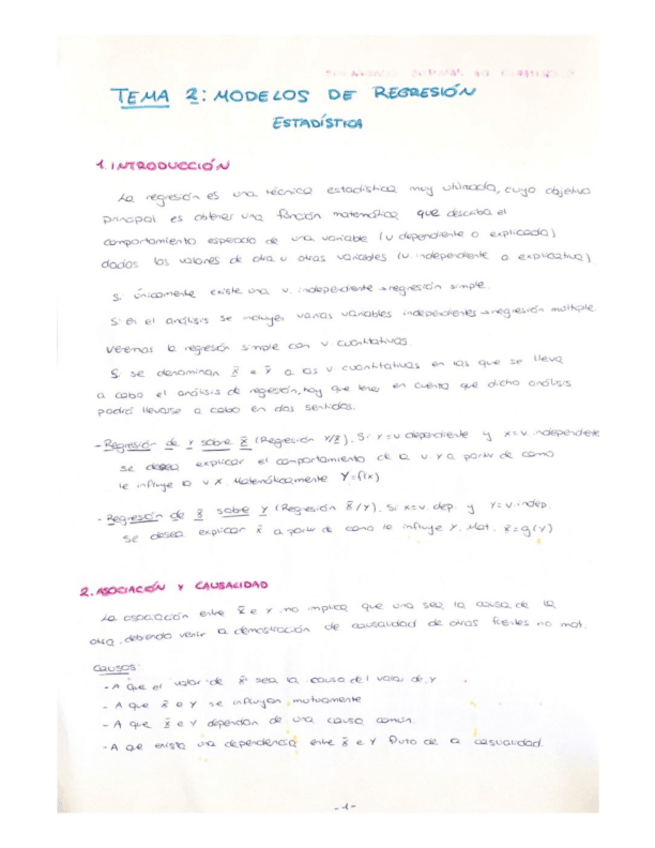 TEMA 2: MODELOS DE REGRESIÓN
ESTADÍSTICA
1. INTRODUCCIÓN
La regresión es una técnica estadística muy utilizada, cuyo objetivo
principal es obtener una función matemática que describa el
comportamiento esperado de una variable (v dependiente o explicada)
dados los valores de otra u otras variables (v. independiente o explicativa)
Si únicamente existe una v. independiente → regresión simple.
Si en el análisis se incluyen varias variables independientes → regresión múltiple.
Veremos la regresión simple con v. cuantitativas.
Si se denominan X e Y a las v cuantitativas en las que se lleva
a cabo el análisis de regresión, hay que tener en cuenta que dicho análisis
podrá llevarse a cabo en dos sentidos.
- Regresión de Y sobre X (Regresión Y/X). Si Y=v dependiente y X=v. independiente
se desea explicar el comportamiento de la v. Y a partir de como
le influye la v X. Matemáticamente Y=f(x)
- Regresión de X sobre Y (Regresión X/Y). Si X=v. dep. y Y=v.indep.
se desea explicar X a partir de como le influye Y. Mat. X=g(Y)
2. ASOCIACIÓN Y CAUSALIDAD
La asociación entre X e Y no implica que una sea la causa de la
otra, debiendo venir la demostración de causalidad de otras fuentes no mat.
Causas:
- A que el valor de X sea la causa del valor de Y
- A que X e Y se influyan mutuamente
- A que X e Y dependan de una causa común.
- A que exista una dependencia entre X e Y fruto de la casualidad.
-1-